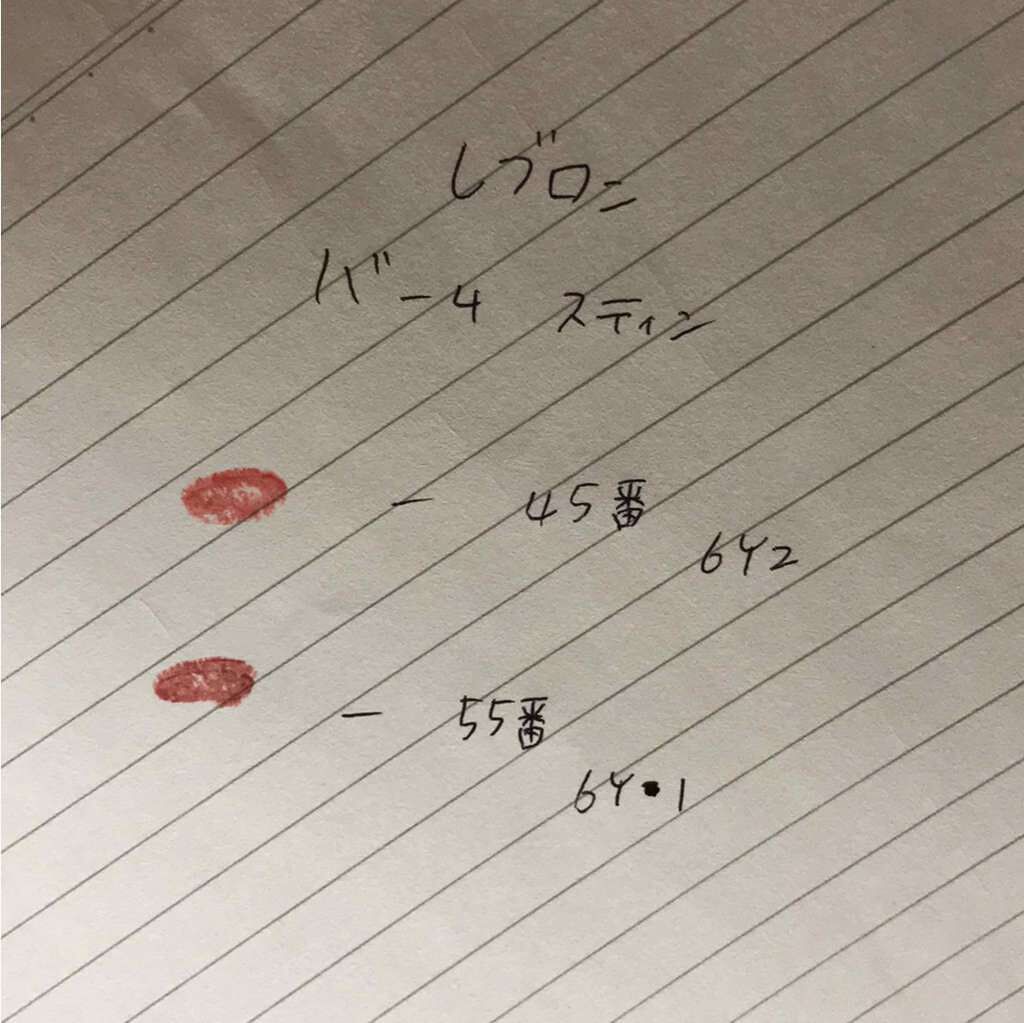 レブロン
バー4 スティン
- 45番
642
- 55番
64・1